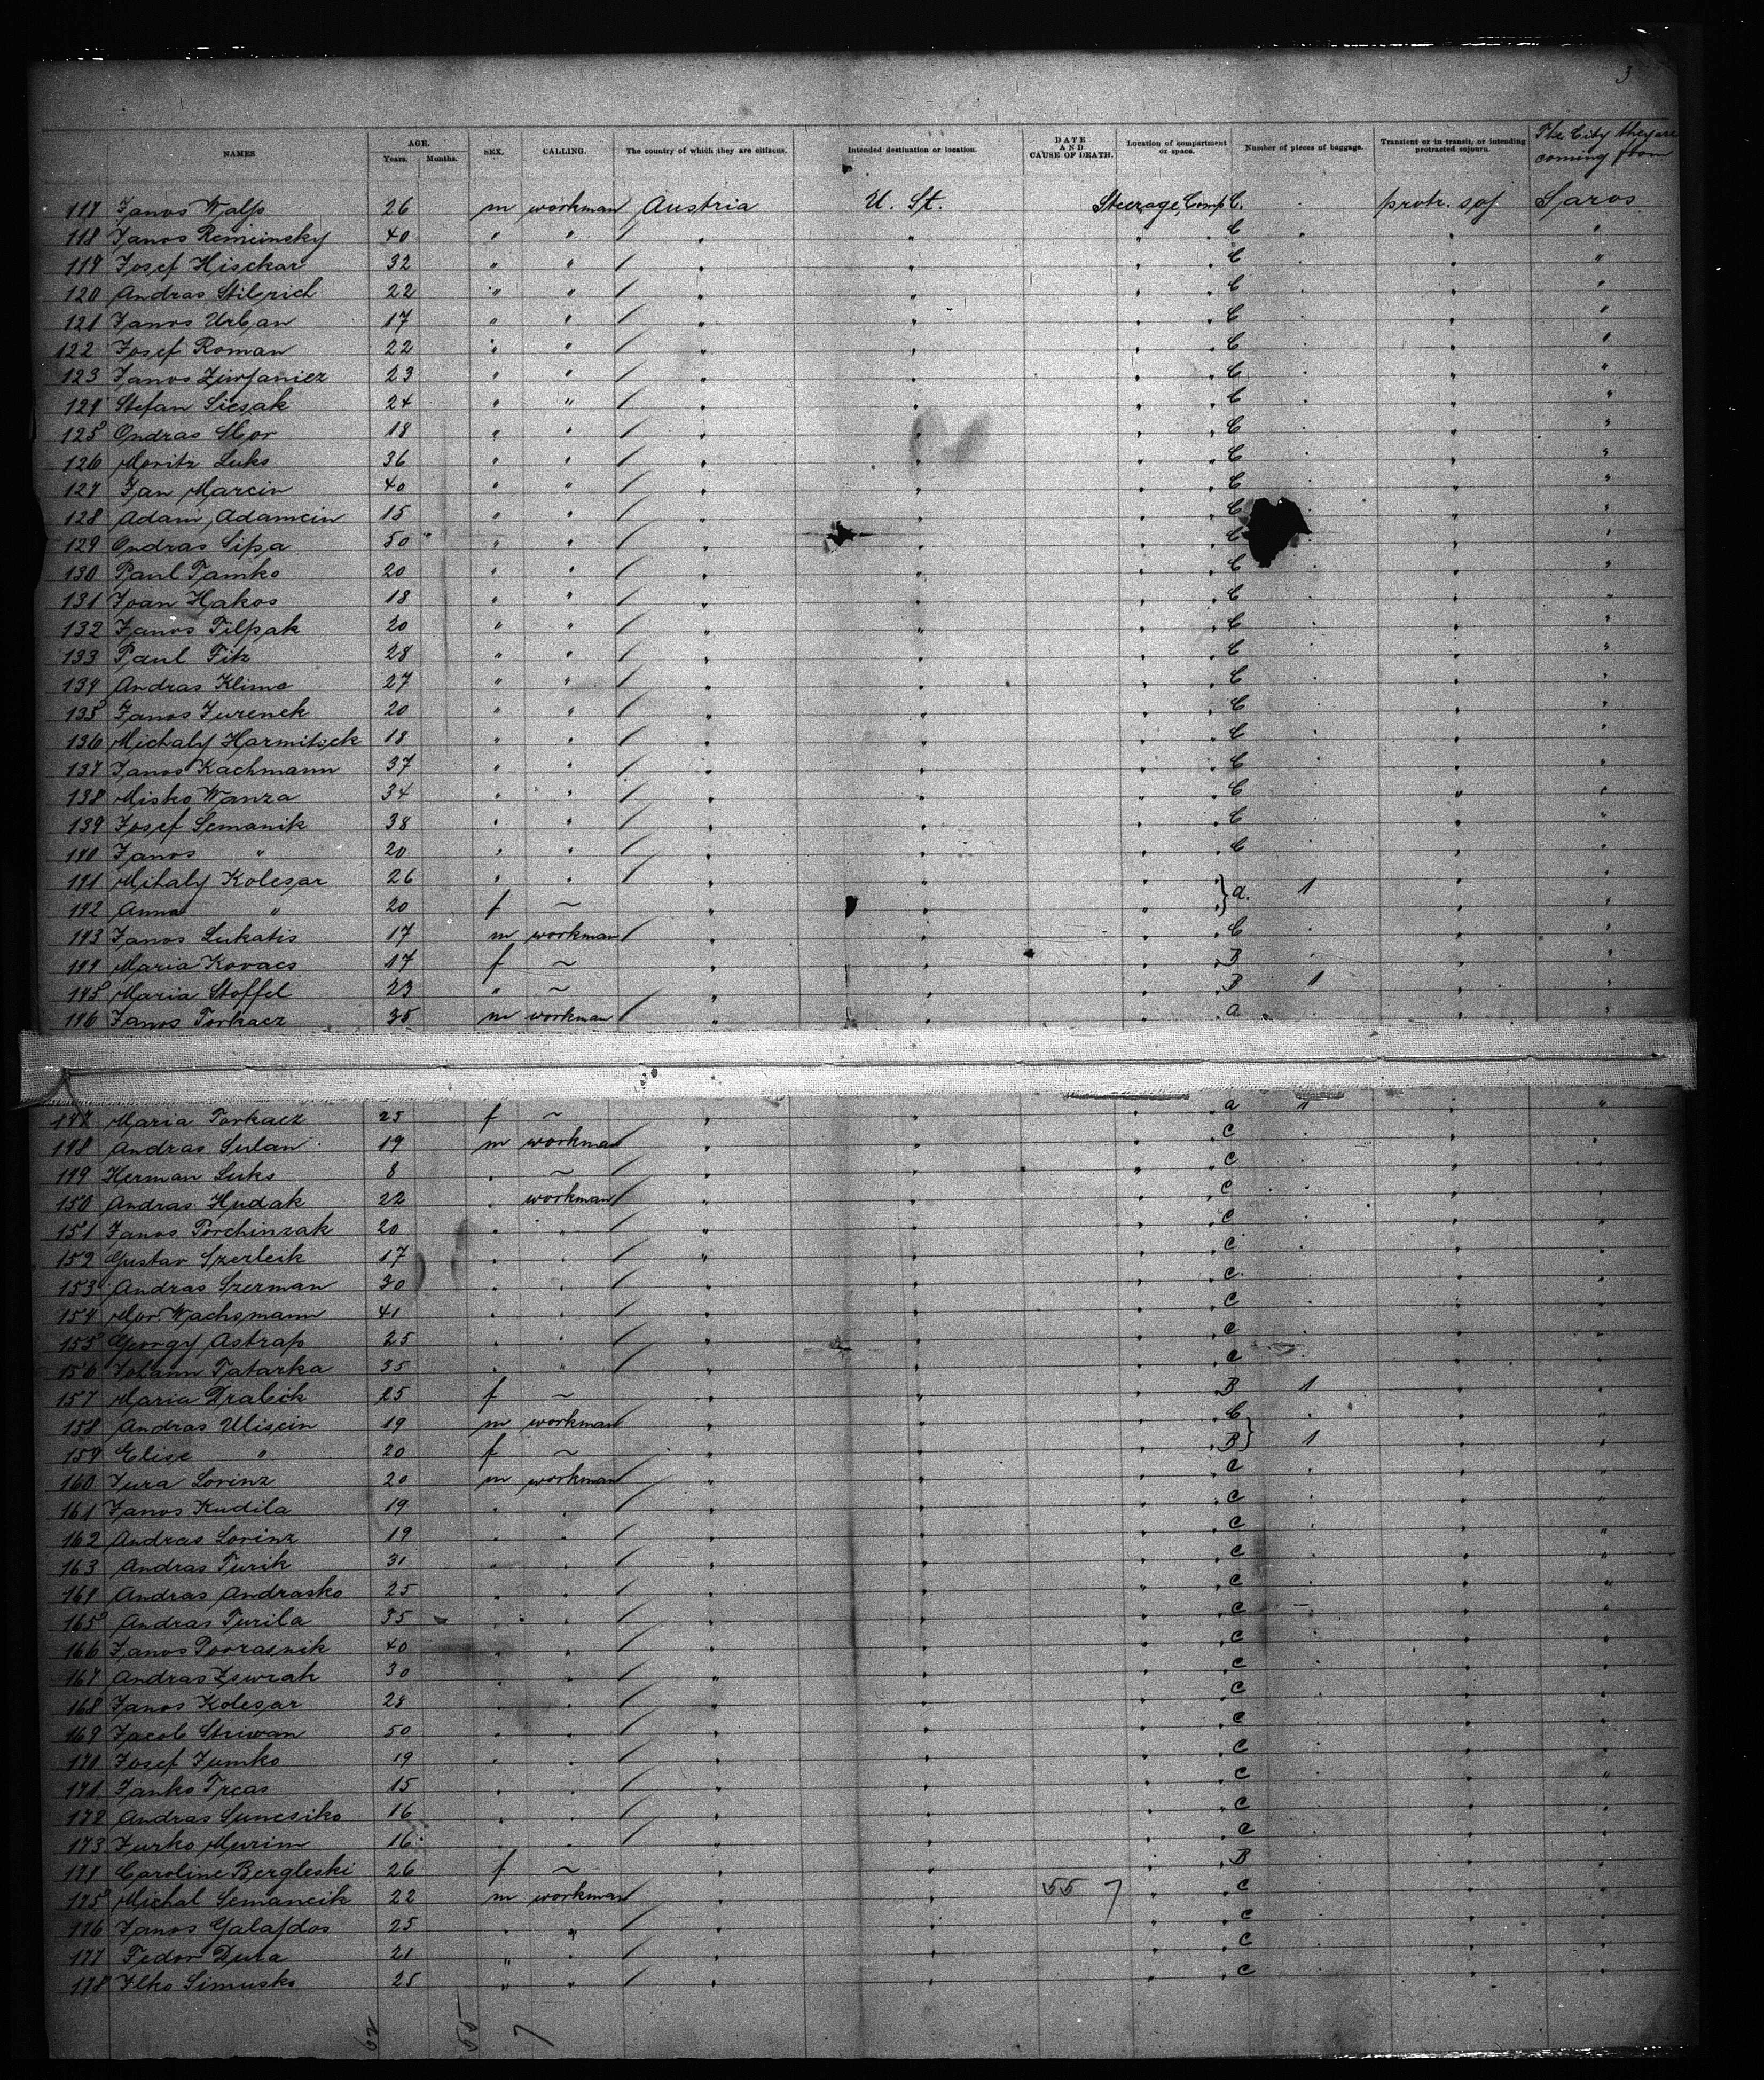 3
NAMES AGE. Years. Months. SEX. CALLING. The country of which they are citizens. Intended destination or location. DATE AND CAUSE OF DEATH. Location of compartment or space. Number of pieces of baggage. Transient or in transit, or intending protracted sojourn. The City they are coming from
117 Janos Walp 26 m workman Austria U. St. Steerage, Comp C. protr. soj Saros
118 Janos Remeinsky 40 " " " " " " C " "
119 Josef Hisckar 32 " " " " " " C " "
120 Andras Stilrich 22 " " " " " " C " "
121 Janos Urban 17 " " " " " " C " "
122 Josef Roman 22 " " " " " " C " "
123 Janos 23 " " " " " " C " "
124 Stefan Sicsak 24 " " " " " " C " "
125 Ondras 18 " " " " " " C " "
126 Moritz Luks 36 " " " " " " C " "
127 Jan Marcin 40 " " " " " " C " "
128 Adam Adamcin 15 " " " " " " C " "
129 Ondras Sipa 50 " " " " " " C " "
130 Paul Tamko 20 " " " " " " C " "
131 Joan Hakos 18 " " " " " " C " "
132 Janos Tilpak 20 " " " " " " C " "
133 Paul Fitz 28 " " " " " " C " "
134 Andras Klimo 27 " " " " " " C " "
135 Janos Jurenek 20 " " " " " " C " "
136 Michaly Harmitsek 18 " " " " " " C " "
137 Janos Kachmann 37 " " " " " " C " "
138 Misko Wanza 34 " " " " " " C " "
139 Josef Semanik 38 " " " " " " C " "
140 Janos " 20 " " " " " " C " "
141 Mihaly Kolesar 26 " " " " " " } a. 1 " "
142 Anna " 20 f ~ " " " " " "
143 Janos Lukatis 17 m workman " " " " C " "
144 Maria Kovacs 17 f ~ " " " " B " "
145 Maria Stoffel 23 " ~ " " " " B 1 " "
146 Janos Torkacz 35 m workman " " " " a " "
147 Maria Torkacz 25 f ~ " " " " a " " "
148 Andras Sulan 19 m workman " " " " C " "
149 Herman Luks 8 " ~ " " " " C " "
150 Andras Hudak 22 " workman " " " " C " "
151 Janos Porchinzak 20 " " " " " " C " "
152 Gustav Szerleik 17 " " " " " " C " "
153 Andras Szerman 30 " " " " " " C " "
154 Mor Wachsmann 41 " " " " " " C " "
155 Georgy Astrap 25 " " " " " " C " "
156 Johann Tatarka 35 " " " " " " C " "
157 Maria Drabik 25 f ~ " " " " B 1 " "
158 Andras Uliscin 19 m workman " " " " C " "
159 Elise " 20 f ~ " " " " B } 1 " "
160 Jura Lorinz 20 m workman " " " " C " "
161 Janos Kudila 19 " " " " " " C " "
162 Andras Lorinz 19 " " " " " " C " "
163 Andras Turik 31 " " " " " " C " "
164 Andras Andrasko 25 " " " " " " C " "
165 Andras Turila 35 " " " " " " C " "
166 Janos Porrasnik 40 " " " " " " C " "
167 Andras 30 " " " " " " C " "
168 Janos Kolesar 28 " " " " " " C " "
169 Jacob Striwan 50 " " " " " " C " "
170 Josef Jumko 19 " " " " " " C " "
171 Janko Treas 15 " " " " " " C " "
172 Andras Suncsiko 16 " " " " " " C " "
173 Jurko Murim 16 " " " " " " C " "
174 Caroline Bergleski 26 f ~ " " " " B " "
175 Michal Semancik 22 m workman " " 55 7 " " C " "
176 Janos Galajdos 25 " " " " " " C " "
177 Fedor Duta 21 " " " " " " C " "
178 Ilko Simusko 25 " " " " " " C " "
62 55 7